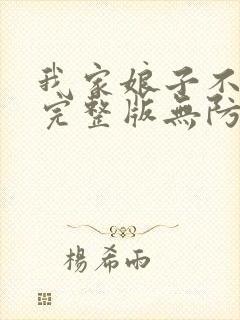 我家娘子不
完整版無防
楊希雨